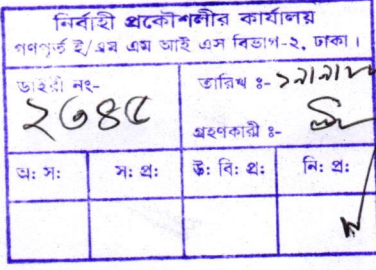 নির্বাহী প্রকৌশলীর কার্যালয়
গণপূর্ত ই/এম এম আই এস বিভাগ-২, ঢাকা।
ডাইরী নং- তারিখ ঃ-
২৩৪৫
গ্রহণকারী ঃ-
অ: স: স: প্র: উ: বি: প্র: নি: প্র: